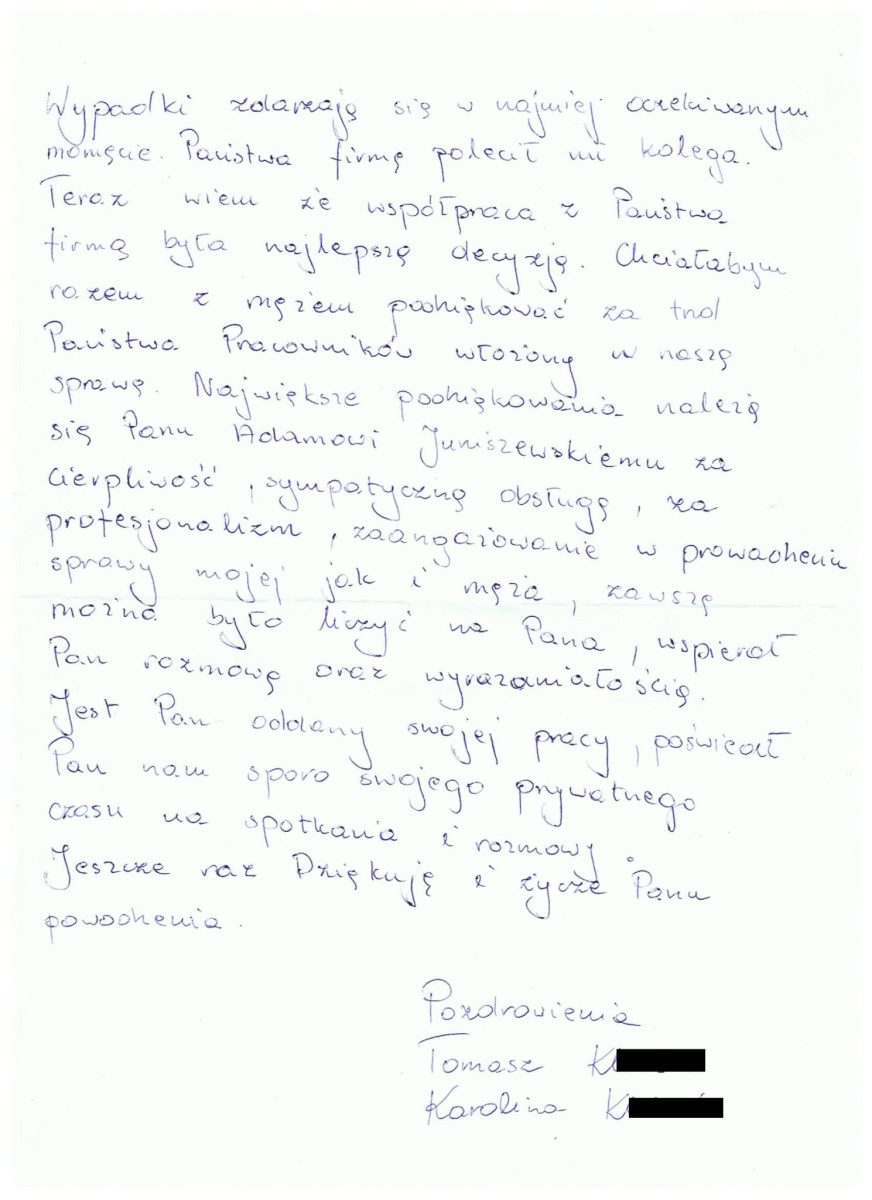 Wypadki zdarzają się w najmiej oczekiwanym
momęcie. Państwa firmę polecił mi kolega.
Teraz wiem że współpraca z Państwa
firmą była najlepszą decyzją. Chciałabym
razem z mężem podziękować za trud
Państwa Pracowników włożony w naszą
sprawę. Największe podziękowania należą
się Panu Adamowi Juniszewskiemu za
cierpliwość, sympatyczną obsługę, za
profesjonalizm, zaangażowanie w prowadzeniu
sprawy mojej jak i męża, zawszę
można było liczyć na Pana, wspierał
Pan rozmową oraz wyrazamiałością.
Jest Pan oddany swojej pracy, poświcał
Pan nam sporo swojego prywatnego
czasu na spotkania i rozmowy.
Jeszcze raz Dziękuję i życzę Panu
powodzenia.
Pozdrowienia
Tomasz K
Karolina K